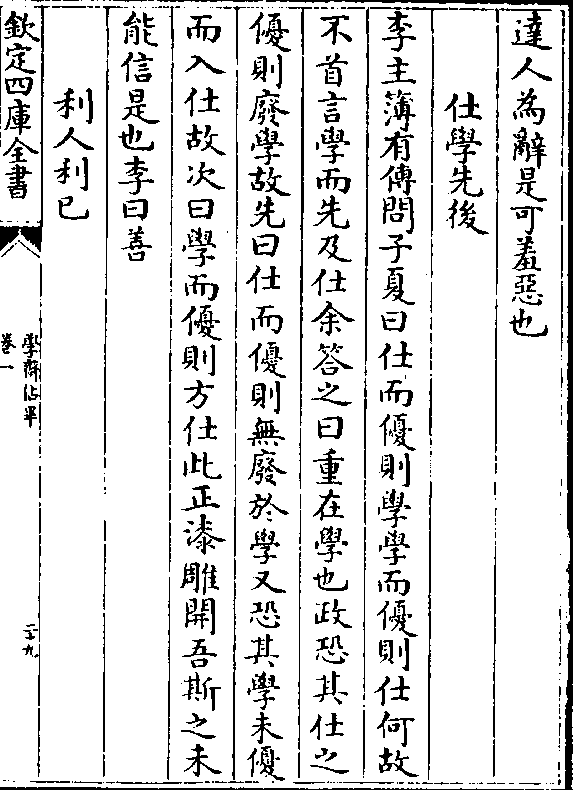 達人為辭是可羞惡也
仕學先後
李主簿有傳問子夏曰仕而優則學學而優則仕何故
不首言學而先及仕余答之曰重在學也政恐其仕之
優則廢學故先曰仕而優則無廢於學又恐其學未優
而入仕故次曰學而優則方仕此正漆雕開吾斯之未
能信是也李曰善
利人利已
欽定四庫全書
學齋佔畢
卷一
二十九